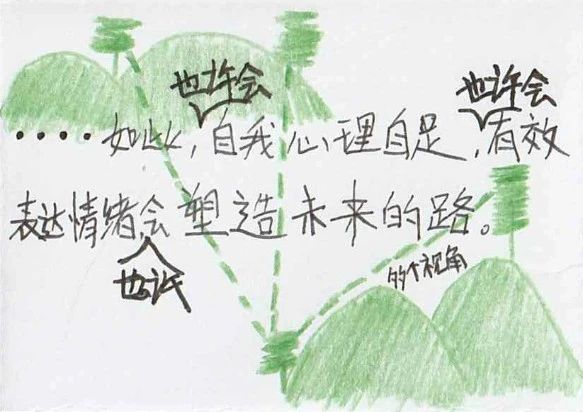 也许会 也许会
....如此,自我心理自足,有效
表达情绪会塑造未来的路。
也许
的个视角